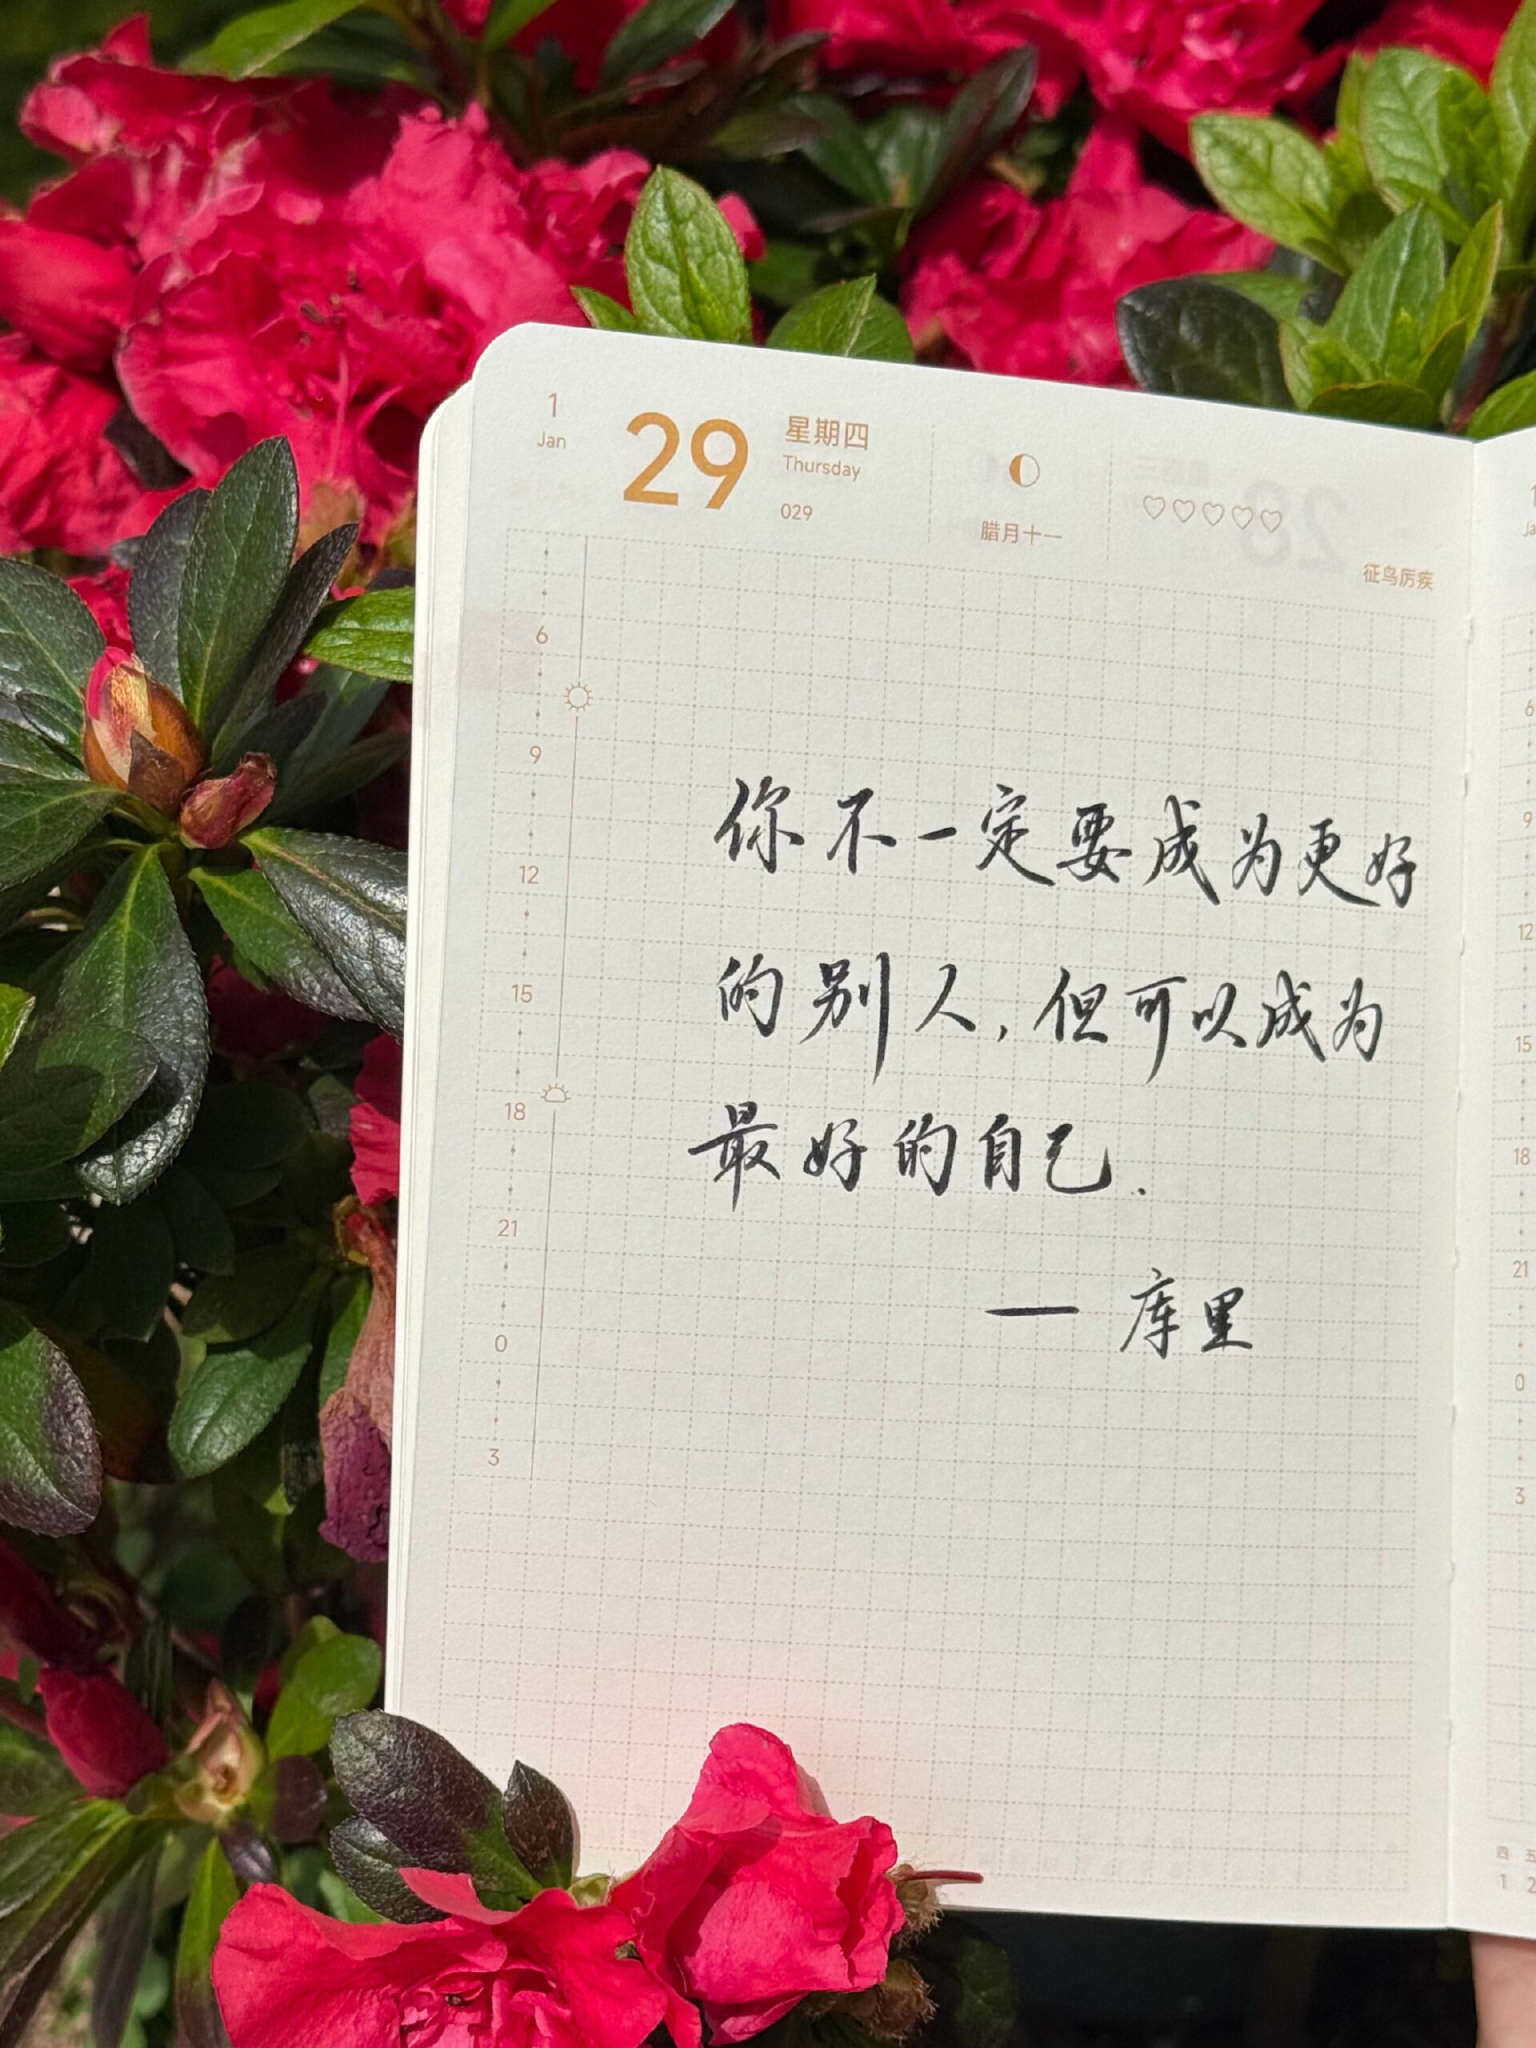 1
Jan
29
星期四
Thursday
029
腊月十一
♡♡♡♡♡
征鸟厉疾
6
9
12
15
18
21
0
3
你不一定要成为更好
的别人,但可以成为
最好的自己.
— 库里
6
9
12
15
18
21
0
3
四 五
1 2